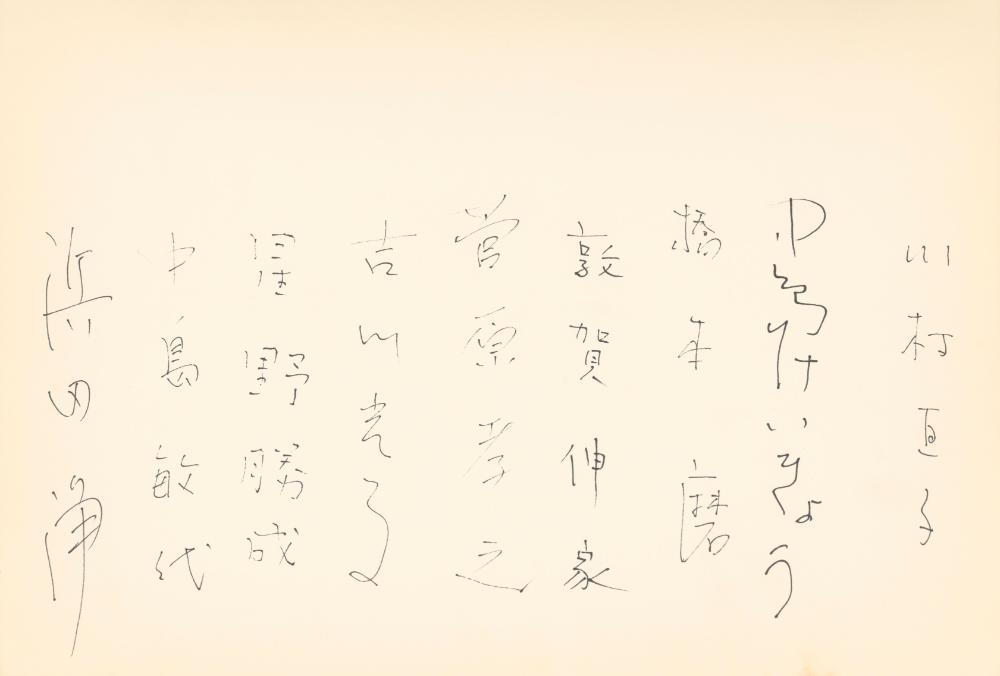 川村直子
中島けいきょう
橋本磨
敦賀伸家
菅原孝之
吉川光
星野勝成
中島敏代
浜田浄